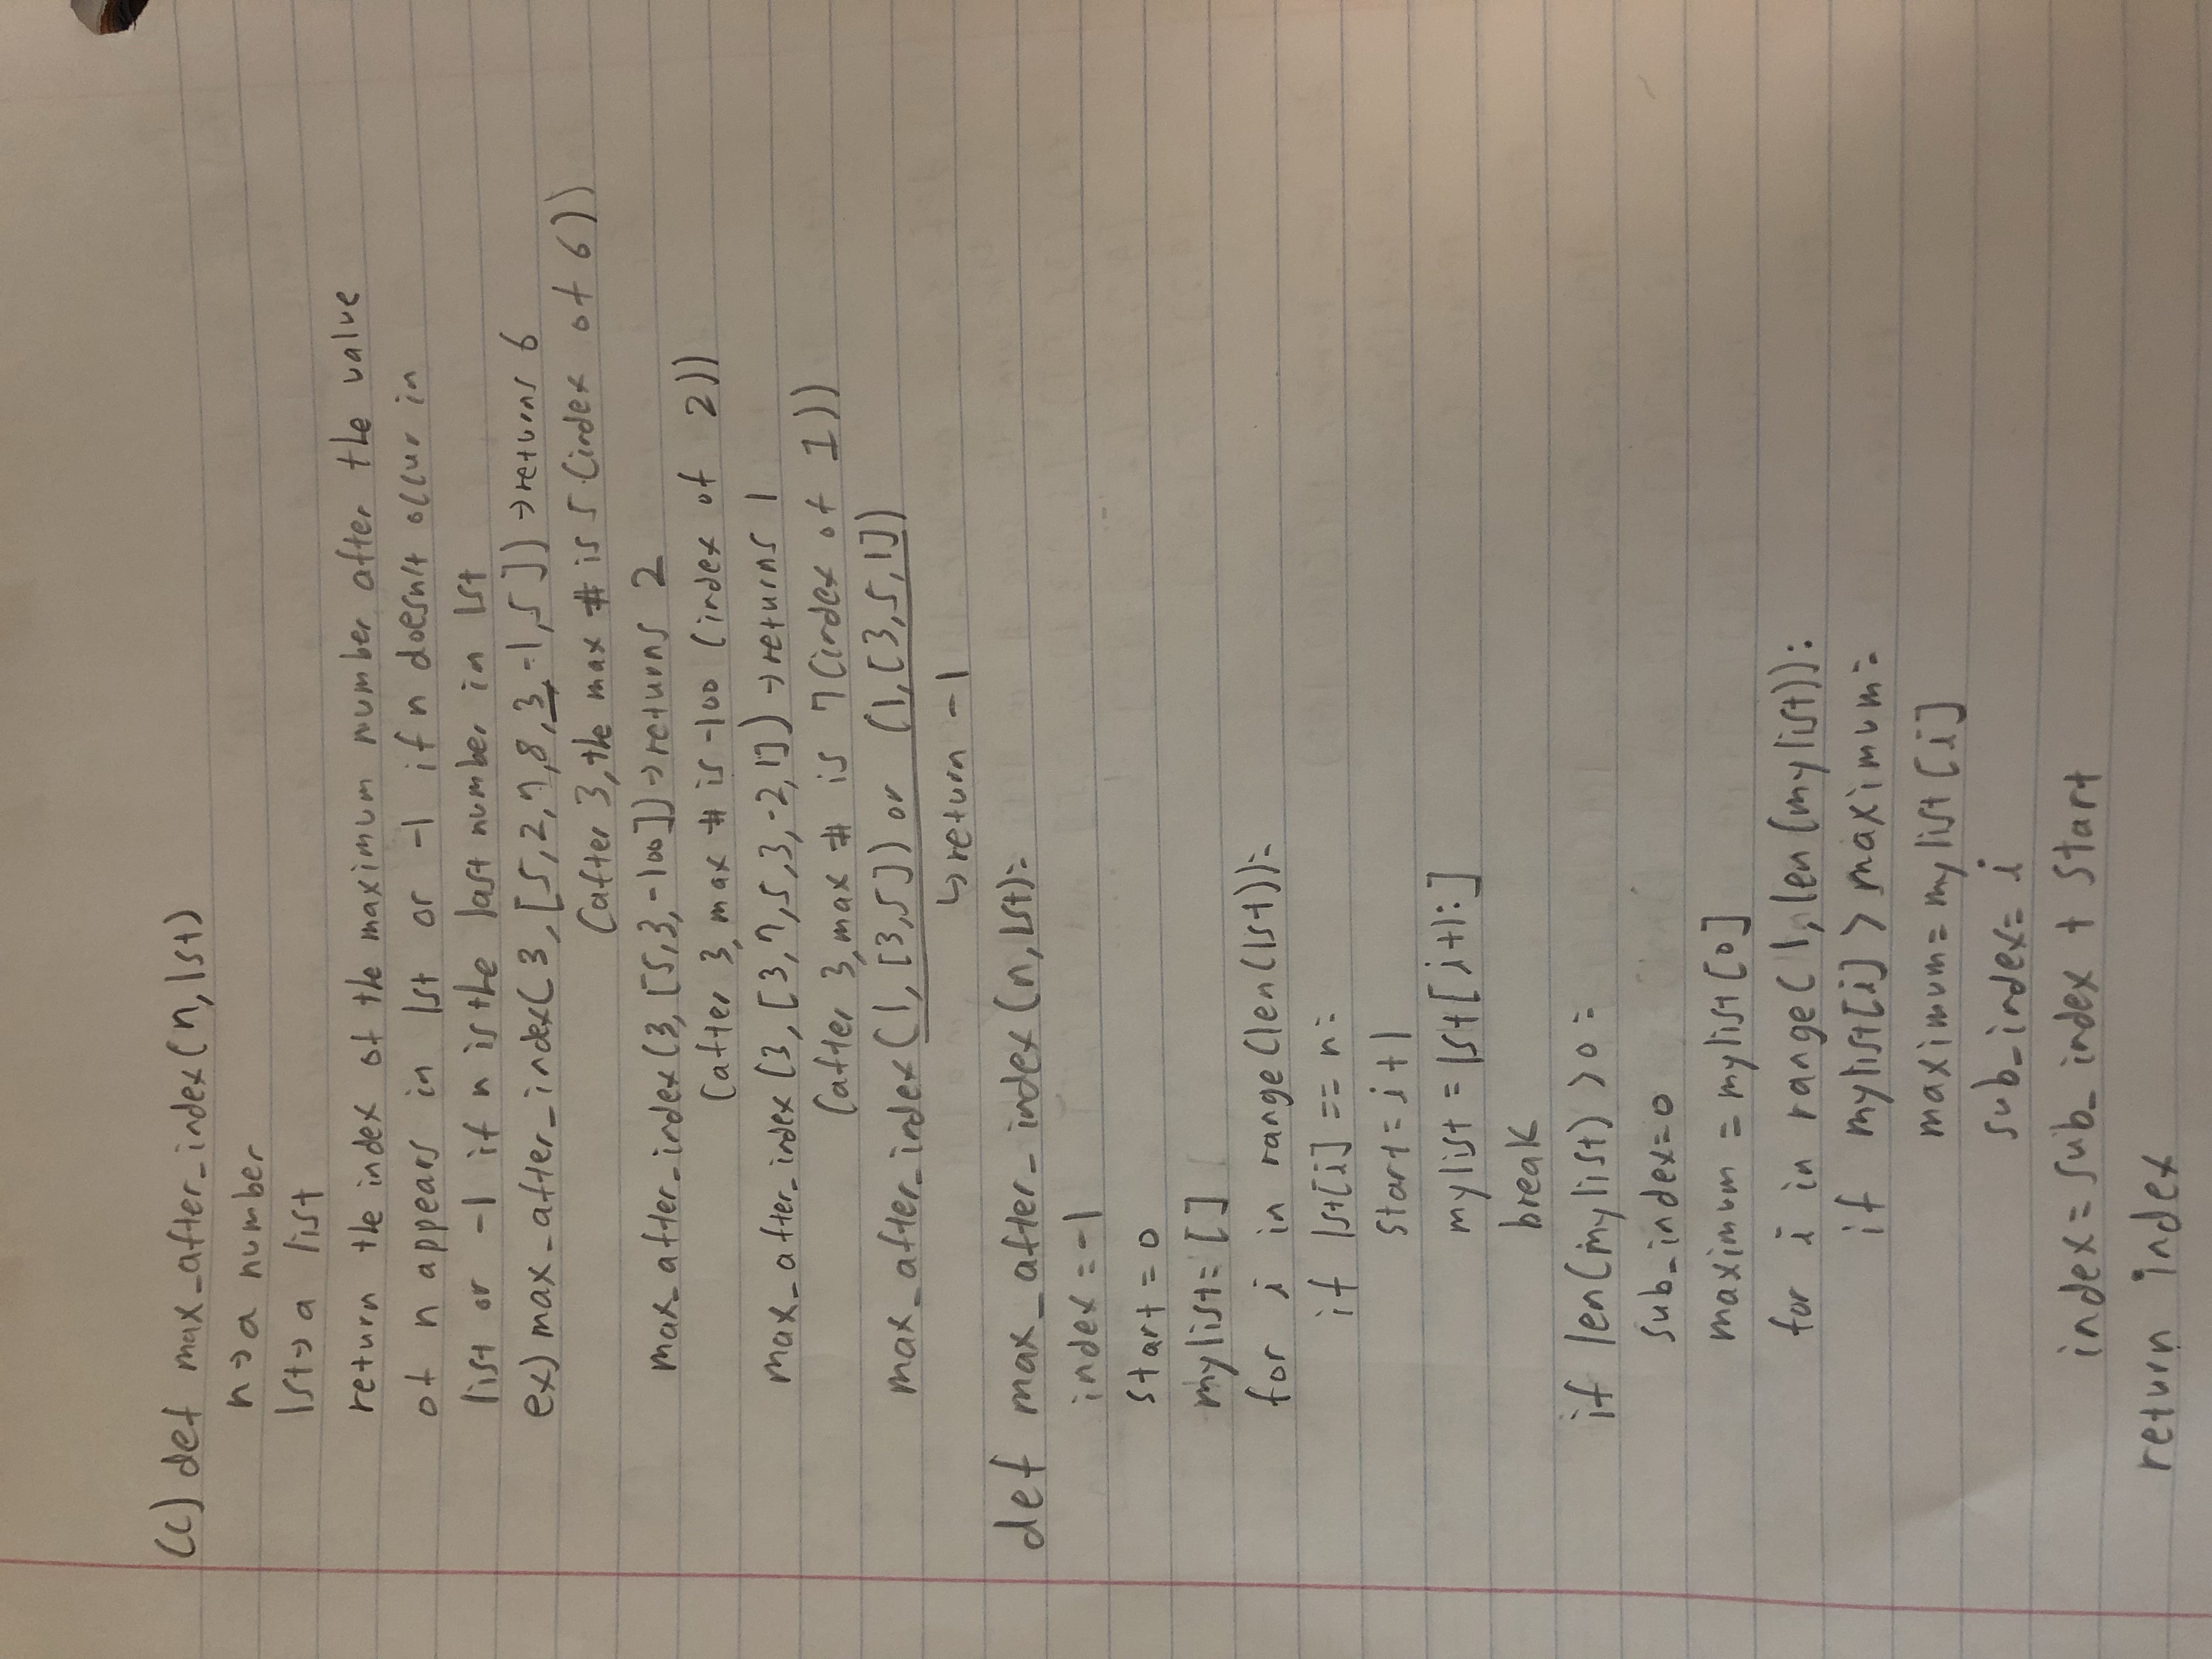 (c) def max_after_index(n, lst)
n→a number
lst→a list
return the index of the maximum number after the value
of n appears in lst or -1 if n doesn't occur in
list or -1 if n is the last number in lst
ex) max_after_index(3, [5,2,7,8,3,-1,5]) →returns 6
(after 3, the max # is 5 (index of 6))
max_after_index(3, [5,3,-100]) →returns 2
(after 3, max # is -100 (index of 2))
max_after_index(3, [3,7,5,3,-2,1]) →returns 1
(after 3, max # is 7 (index of 1))
max_after_index(1, [3,5]) or (1,[3,5,1])
↳return -1
def max_after_index(n, lst):
index=-1
start=0
mylist=[]
for i in range(len(lst)):
if lst[i] == n:
start=i+1
mylist=lst[i+1:]
break
if len(mylist)>0:
sub_index=0
maximum = mylist[0]
for i in range(1, len(mylist)):
if mylist[i] > maximum:
maximum=mylist[i]
sub_index=i
index=sub_index + start
return index